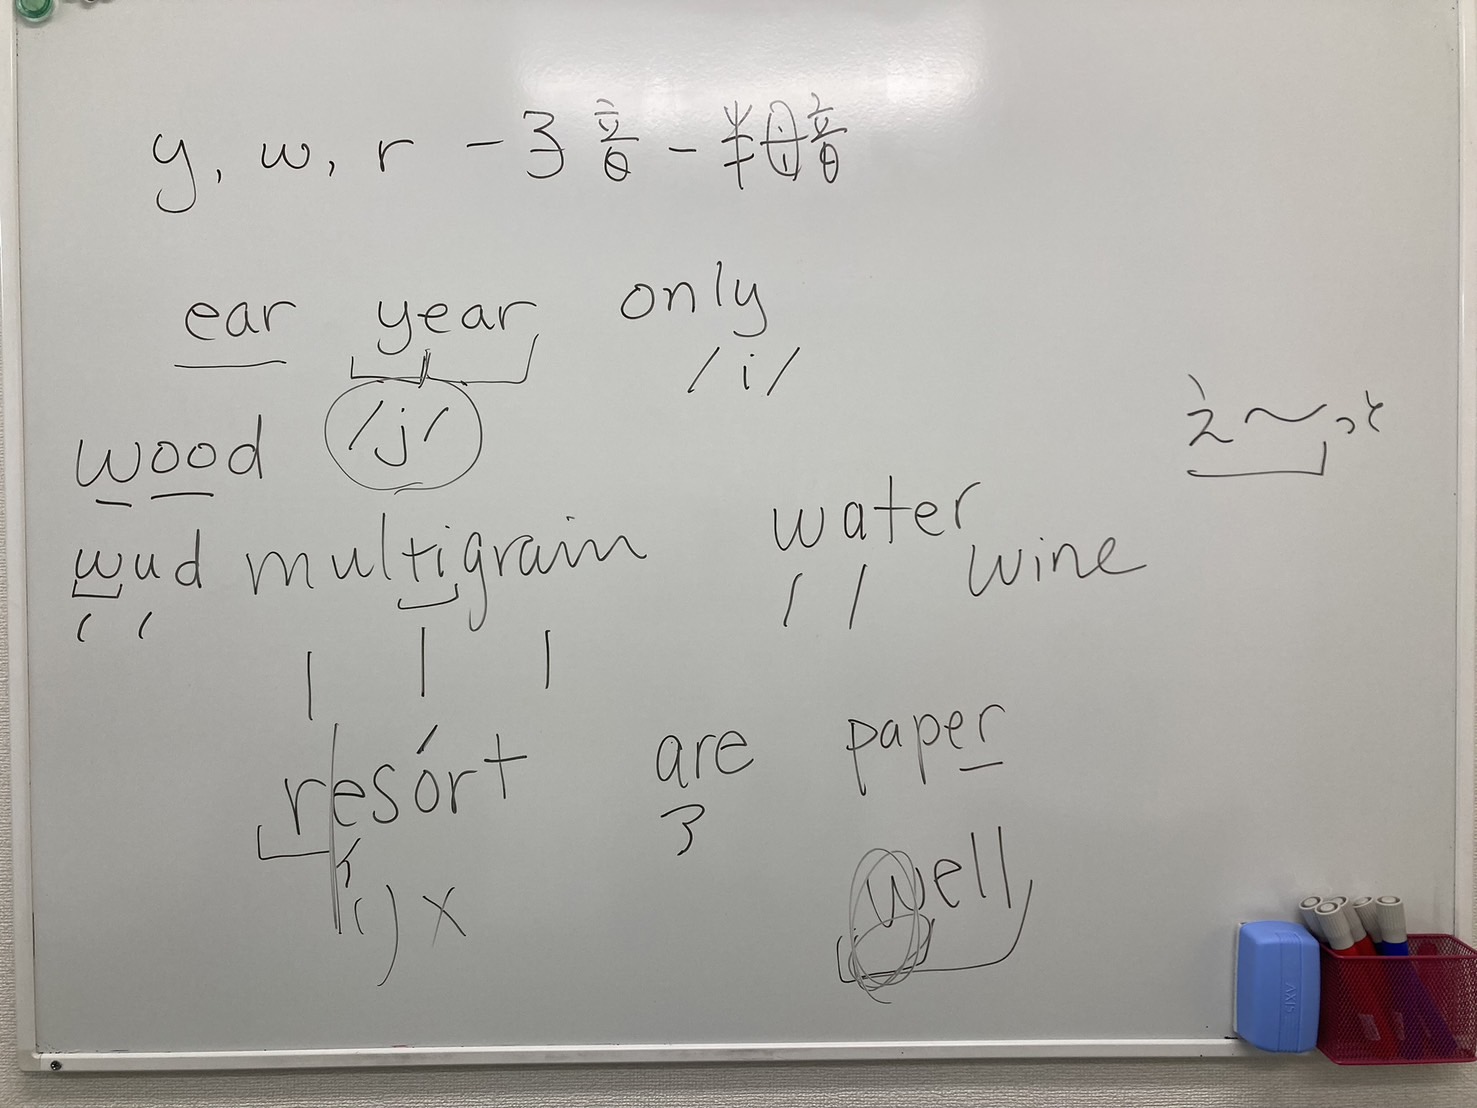 y, w, r - 3音 - 半母音
ear year only
/j/ /i/
え〜っと
wood
wud multigrain water wine
resórt are paper
3
(i) x
well
AXIS